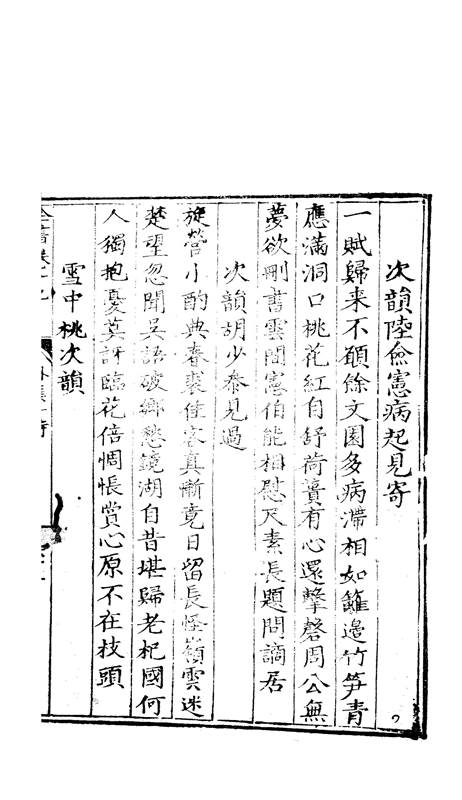 次韻陸僉憲病起見寄
一賦歸来不願餘文園多病滯相如籬邊竹笋青
應滿洞口桃花紅自舒荷蕢有心還擊磬周公無
夢欲刪書雲間憲伯能相慰尺素長題問謫居
次韻胡少叅見過
旋營小酌典春裘佳客真慚竟日留長怪嶺雲迷
楚望忽聞吳語破鄉愁鏡湖自昔堪歸老杞國何
人獨抱憂莫訝臨花倍惆悵賞心原不在枝頭
雪中桃次韻